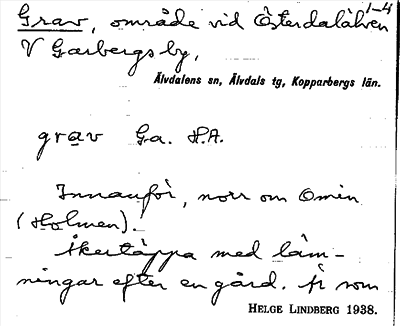 1-4
Grav, område vid Österdalälven
V Garbergs by,
Älvdalens sn, Älvdals tg, Kopparbergs län.
grav Ga. H.A.
Innanför, norr om Omin
(Holmen).
Åkertäppa med läm-
ningar efter en gård. Är som
HELGE LINDBERG 1938.